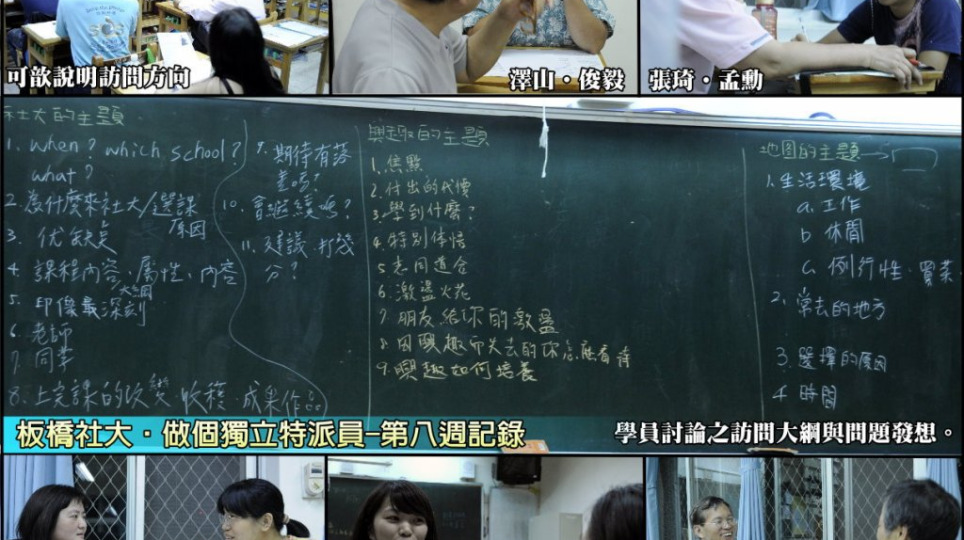 可歆說明訪問方向
澤山・俊毅
張琦・孟勳
社大的主題
1. when? which school?
what?
2. 為什麼來社大/選課
原因
3. 优缺点
4. 課程內容、屬性、內容
大綱
5. 印像最深刻
6. 老師
7. 同莘
8. 上完課的改變、收穫、成果作品
9. 期待有落
差嗎?
10. 會繼續嗎?
11. 建議 打幾
分?
興趣的主題
1. 焦點
2. 付出的代價
3. 學到什麼?
4. 特別体悟
5. 志同道合
6. 激盪火花
7. 朋友給你的激盪
8. 因興趣而失去的你怎麼看待
9. 興趣如何培養
地图的主題→
1. 生活環境
a. 工作
b 休閒
c. 例行性、買菜
2. 常去的地方
3. 選擇的原因
4 時間
板橋社大・做個獨立特派員-第八週記錄
學員討論之訪問大綱與問題發想。